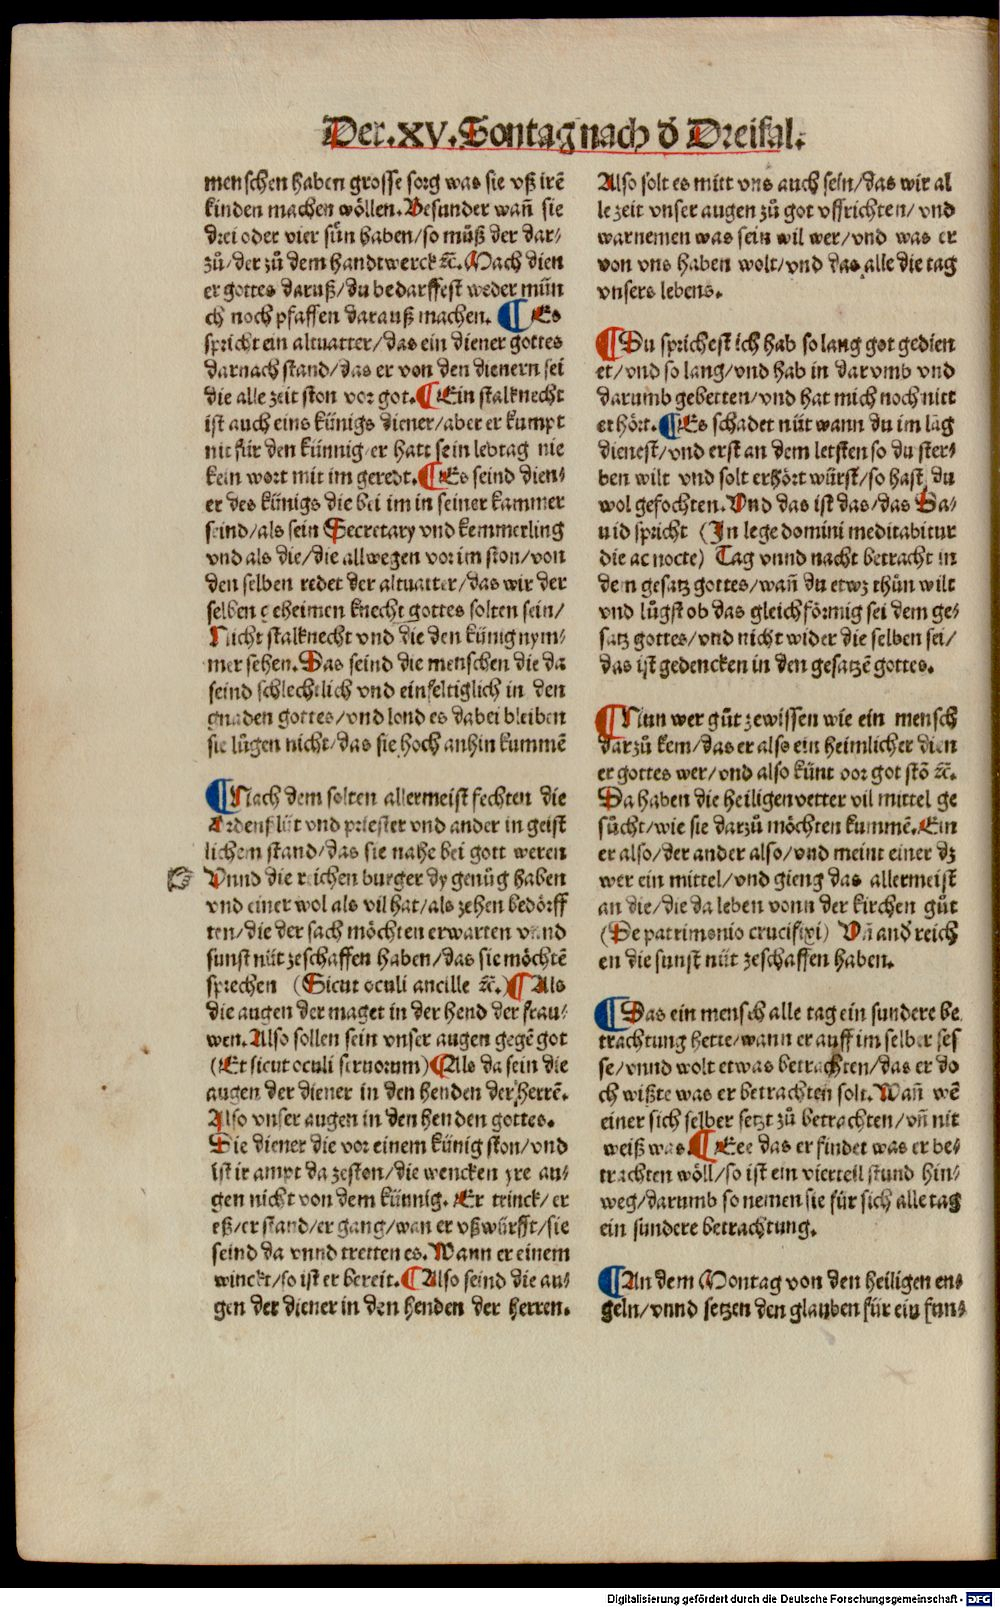 Der.XV.Sontag nach d' Dreifal.
menschen haben grosse sorg was sie vß irē
kinden machen wöllen.Besunder wañ sie
drei oder vier sün haben/so můß der dar⸗
zů/der zů dem handtwerck ⁊c̄.Mach dien
er gottes daruß/du bedarffest weder mün
ch noch pfaffen darauß machen. ¶Es
spricht ein altuatter/das ein diener gottes
darnach stand/das er von den dienern sei
die alle zeit ston vor got.¶Ein stalknecht
ist auch eins künigs diener/aber er kumpt
nit für den künnig/er hatt sein lebtag nie
kein wort mit im geredt.¶Es seind dien⸗
er des künigs die bei im in seiner kammer
seind/als sein Secretary vnd kemmerling
vnd als die/die allwegen vor im ston/von
den selben redet der altuatter/das wir der
selben geheimen knecht gottes solten sein/
Nicht stalknecht vnd die den künig nym⸗
mer sehen.Das seind die menschen die da
seind schlechtlich vnd einfeltiglich in den
gnaden gottes/vnd lond es dabei bleiben
sie lůgen nicht/das sie hoch anhin kummē
¶Nach dem solten allermeist fechten die
Ordenßlüt vnd priester vnd ander in geist
lichem stand/das sie nahe bei gott weren
Vnnd die reichen burger dy genůg haben
vnd einer wol als vil hat/als zehen bedörff
ten/die der sach möchten erwarten vnnd
sunst nüt zeschaffen haben/das sie möchtē
sprechen (Sicut oculi ancille ⁊c̄.)¶Als
die augen der maget in der hend der frau⸗
wen.Also sollen sein vnser augen gegē got
(Et sicut oculi seruorum)¶Als da sein die
augen der diener in den henden der herrē.
Also vnser augen in den henden gottes.
Die diener die vor einem künig ston/vnd
ist ir ampt da zeston/die wencken yre au⸗
gen nicht von dem künnig.Er trinck/er
eß/er stand/er gang/wan er vßwürfft/sie
seind da vnnd tretten es.Wann er einem
winckt/so ist er bereit.¶Also seind die au⸗
gen der diener in den henden der herren.
Also solt es mitt vns auch sein/das wir al
le zeit vnser augen zů got vffrichten/vnd
warnemen was sein wil wer/vnd was er
von vns haben wolt/vnd das alle die tag
vnsers lebens.
¶Du sprichest ich hab so lang got gedien
et/vnd so lang/vnd hab in darvmb vnd
darumb gebetten/vnd hat mich noch nitt
erhört.¶Es schadet nüt wann du im lag
dienest/vnd erst an dem letsten so du ster⸗
ben wilt vnd solt erhört würst/so hast du
wol gefochten.Vnd das ist das/das Da⸗
uid spricht (In lege domini meditabitur
die ac nocte) Tag vnnd nacht betracht in
dem gesatz gottes/wañ du etwz thůn wilt
vnd lůgst ob das gleichförmig sei dem ge⸗
satz gottes/vnd nicht wider die selben sei/
das ist gedencken in den gesatzē gottes.
¶Nun wer gůt zewissen wie ein mensch
darzů kem/das er also ein heimlicher dien
er gottes wer/vnd also künt vor got stō ⁊c̄.
Da haben die heiligen vetter vil mittel ge
sůcht/wie sie darzů möchten kummē.Ein
er also/der ander also/vnd meint einer dz
wer ein mittel/vnd gieng das allermeist
an die/die da leben vonn der kirchen gůt
(De patrimonio crucifixi) Vñ and' reich
en die sunst nüt zeschaffen haben.
¶Das ein mensch alle tag ein sundere be
trachtung hette/wann er auff im selber ses
se/vnnd wolt etwas betrachten/das er do
ch wißte was er betrachten solt.Wañ wē
einer sich selber setzt zů betrachten/vñ nit
weiß was.¶Eee das er findet was er be⸗
trachten wöll/so ist ein vierteil stund hin⸗
weg/darumb so nemen sie für sich alle tag
ein sundere betrachtung.
¶An dem Montag von den heiligen en⸗
geln/vnnd setzen den glauben für ein fun⸗
Digitalisierung gefördert durch die Deutsche Forschungsgemeinschaft - DFG